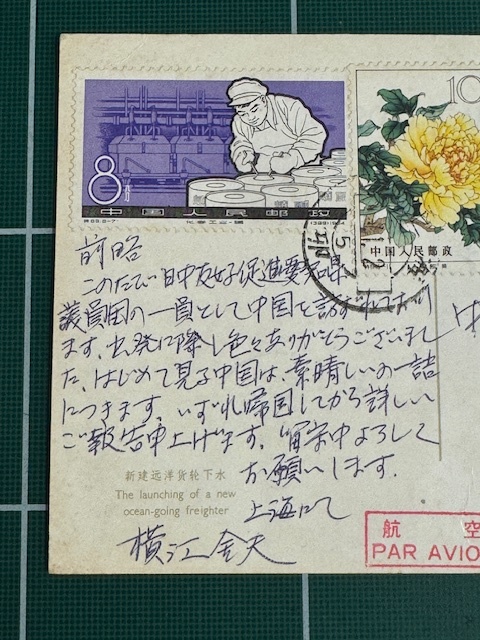 8分
中国人民邮政
10
中国人民邮政
前略
このたび日中友好促進愛知県
議員団の一員として中国を訪ずれており
ます。出発に際し色々ありがとうございまし
た、はじめて見る中国は、素晴しいの一語
につきます。いずれ帰国してから詳しい
ご報告申上げます。留守中よろしく
お願いします。
新建远洋货轮下水
The launching of a new
ocean-going freighter
上海にて
横江金夫
航 空
PAR AVIO